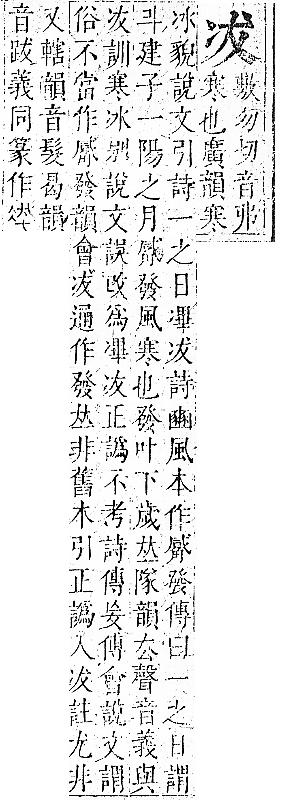 冹
敷勿切音弗
寒也廣韻寒
冰貌說文引詩一之日㓖冹詩豳風本作觱發傳曰一之日謂
斗建子一陽之月觱發風寒也發叶下歲𠀤隊韻去聲音義與
冹訓寒冰別說文誤改爲㓖冹正譌不考詩傳妄傅會說文謂
俗不當作觱發韻會冹通作發𠀤非舊本引正譌入冹註尤非
又轄韻音髮曷韻
音跋義同篆作